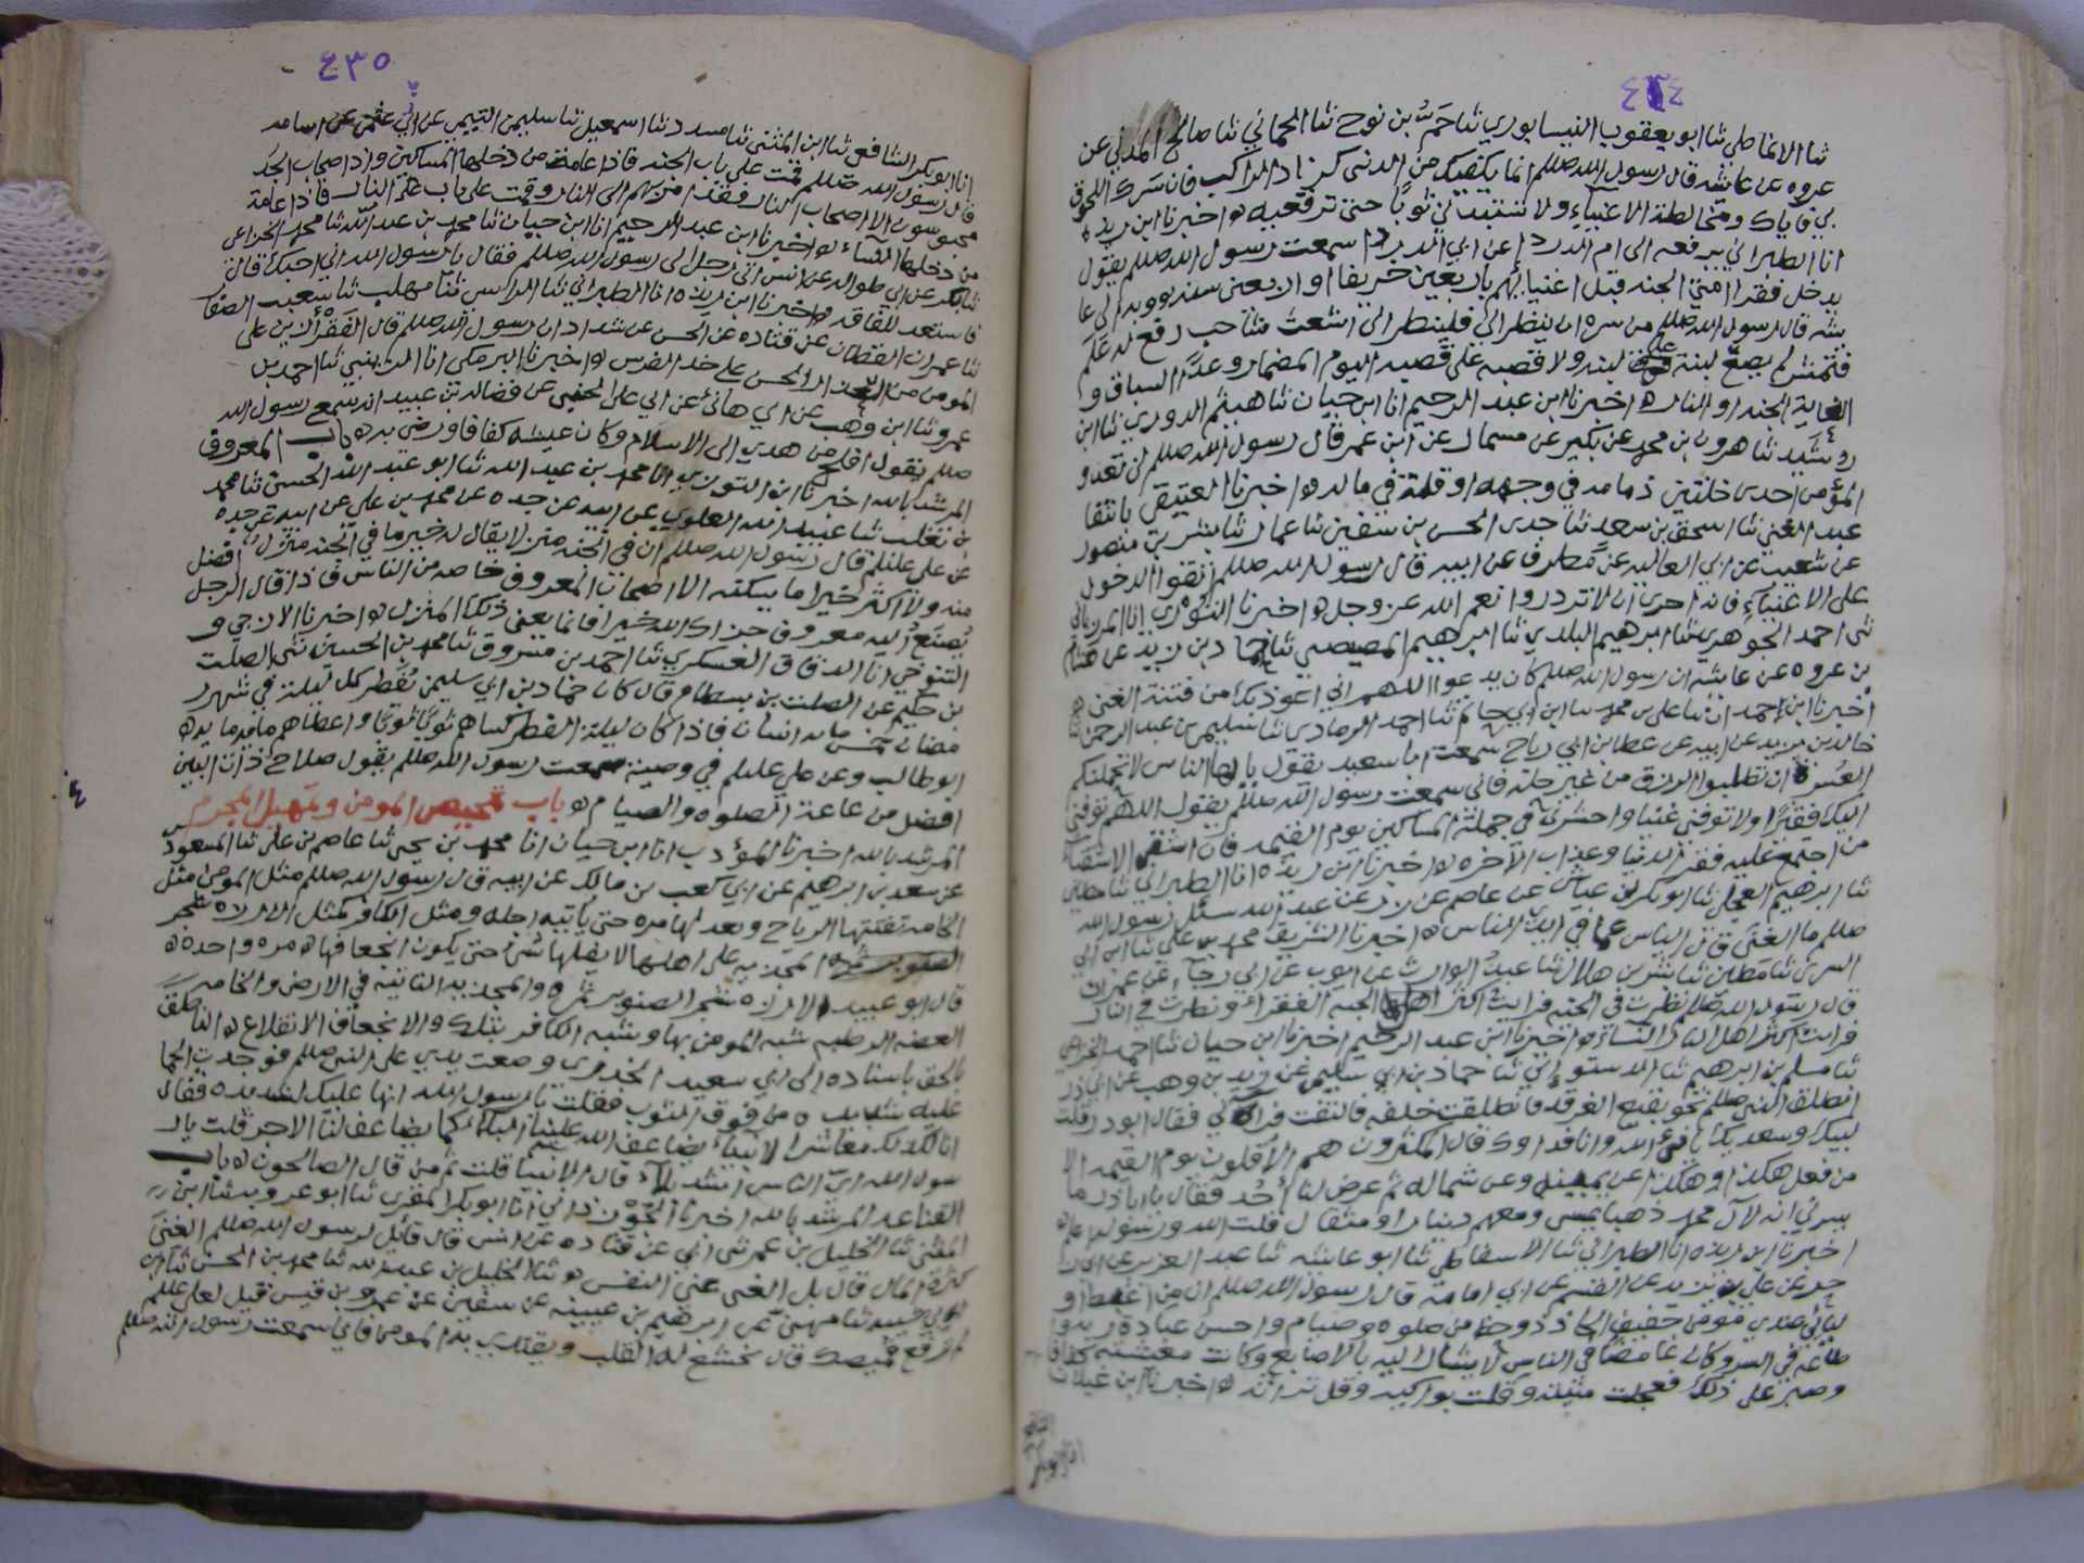 ٤٣٤
ثنا الانماطي ثنا ابو يعقوب النيسابوري ثنا حم بن نوح ثنا الحماني ثنا صالح المدني عن
عروه عن عايشه قال رسول الله صللم انما يكفيك من الدنى كزاد الراكب فان سرك اللحوق
بي فاياك ومخالطة الاغنياء ولا تستبدلي ثوبا حتى ترقعيه ه اخبرنا ابن ريذه
انا الطبراني يرفعه الى ام الدرداء عن ابي الدرداء سمعت رسول الله صللم يقول
يدخل فقرا امتي الجنه قبل اغنيائهم باربعين خريفا او اربعين سنه وبه الى عا
يشه قال رسول الله صللم من سره ان ينظر الي فلينظر الى اشعث شاحب رفع له علم
فشمر لم يضع لبنة على لبنه ولا قصبه على قصبه اليوم المضمار وغدا السباق و
الغاية الجنه او النار ه اخبرنا ابن عبد الرحيم انا ابن حيان ثنا هيثم الدوري ثنا ابن
رشيد ثنا هرون بن محمد عن بكير عن مسمار عن ابن عمر قال رسول الله صللم لن تعدو
المؤمن احدى خلتين ذمامه في وجهه او قلة في ماله ه اخبرنا العتيقي بانتقا
عبد الغني ثنا اسحق بن سعد ثنا جدى الحسن بن سفين ثنا عمار ثنا بشر بن منصور
عن شعيب عن ابي العاليه عن مطرف عن ابيه قال رسول الله صللم اتقوا الدخول
على الاغنياء فانه احرى ان لا تزدروا نعم الله عز وجل ه اخبرنا التوزي انا المرزباني
ثنى احمد الجوهري ثنا ابرهيم البلدي ثنا ابرهيم المصيصي ثنا حماد بن زيد عن هشام
بن عروه عن عايشه ان رسول الله صللم كان يدعوا اللهم اني اعوذ بك من فتنة الغنى ه
اخبرنا ابن احمد انا علي بن محمد ثنا ابن ابي حاتم ثنا احمد الرمادى ثنا سليمن بن عبد الرحمن ثنا
خالد بن يزيد عن ابيه عن عطا بن ابي رباح سمعت ابا سعيد يقول يا ايها الناس لا تحملنكم
العسرة ان تطلبوا الرزق من غير حله فاني سمعت رسول الله صللم يقول اللهم توفني
اليك فقيرا ولا توفني غنيا واحشرني في جملة المساكين يوم القيمه فان اشقى الاشقياء
من اجتمع عليه فقر الدنيا وعذاب الآخره ه اخبرنا ابن ريذه انا الطبراني ثنا مطين
ثنا ابرهيم العجلى ثنا ابو بكر بن عياش عن عاصم عن زر عن عبد الله سئل رسول الله
صللم ما الغنى قال الياس عما في ايدي الناس ه اخبرنا الشريف محمد بن علي ثنا ابن ابي
السري ثنا مطين ثنا بشر بن هلال ثنا عبد الوارث عن ايوب عن ابي رجاء عن عمران
قال رسول الله صللم نظرت في الجنه فرايت اكثر اهلها الفقراء ونظرت في النار
فرايت اكثر اهل النار النساء ه اخبرنا ابن عبد الرحيم اخبرنا ابن حيان ثنا احمد الخزاعي
ثنا مسلم بن ابرهيم ثنا الدستوائي ثنا حماد بن ابي سليمن عن زيد بن وهب عن ابي ذر
انطلق النبي صللم نحو بقيع الغرقد فانطلقت خلفه فالتفت فراني فقال ابو ذر قلت
لبيك وسعديك يا نبي الله وانا فداوك قال المكثرون هم الاقلون يوم القيمه الا
من فعل هكذا وهكذا عن يمينه وعن شماله ثم عرض لنا أحد فقال يا ابا ذر ما
يسرني انه لآل محمد ذهبا يمسى ومعهم دينارا او مثقال قلت الله ورسوله اعلم
اخبرنا ابن ريذه انا الطبراني ثنا الاسفاطي ثنا ابو عايشه ثنا عبد العزيز عن
علي بن يزيد عن القسم عن ابي امامة قال رسول الله صللم ان من اغبط او
ليائي عندي مؤمن خفيف الحاذ ذو حظ من صلوه وصيام واحسن عبادة ربه و
طاعه في السر وكان غامضا في الناس لا يشار اليه بالاصابع وكانت معيشته كفافا
وصبر على ذلك فعجلت منيته وقلت بواكيه وقل تراثه ه اخبرنا ابن غيلان
انا ابو بكر
٤٣٥
انا ابو بكر الشافعي ثنا ابن المثنى ثنا مسدد ثنا اسمعيل ثنا سليمن التيمي عن ابي عثمن عن اسامه
قال رسول الله صللم قمت على باب الجنه فاذا عامة من دخلها المساكين واذا اصحاب الجد
محبوسون الا اصحاب النار فقد امر بهم الى النار وقمت على باب النار فاذا عامة
من دخلها النساء ه اخبرنا ابن عبد الرحيم انا ابن حيان ثنا محمد بن عبد الله ثنا محمد الخزاعي
ثنا بكر عن ابي طوالة عن انس اتى رجل الى رسول الله صللم فقال يا رسول الله اني احبك قال
فاستعد للفاقه ه واخبرنا ابن ريذه انا الطبراني ثنا الراسبي ثنا مهلب ثنا شعيب الصفار
ثنا عمران القطان عن قتاده عن الحسن عن شداد ان رسول الله صللم قال الفقر أزين على
المومن من العذار الحسن على خد الفرس ه اخبرنا البرمكي انا الزينبي ثنا احمد بن
عمرو ثنا ابن وهب عن ابي هانئ عن ابي علي الجنبي عن فضاله بن عبيد انه سمع رسول الله
صللم يقول افلح من هدي الى الاسلام وكان عيشه كفافا ورضي به ه باب المعروف
المرشد بالله اخبرنا ابن التوزي انا محمد بن عبد الله ثنا ابو عبد الله الحسني ثنا محمد
بن تغلب ثنا عبيد الله العلوي عن ابيه عن جده عن محمد بن علي عن ابيه عن جده
عن علي عليلم قال رسول الله صللم ان في الجنه منزلا يقال له خير ما في الجنه منزل افضل
منه ولا اكثر خيرا ما يسكنه الا اصحاب المعروف خاصه من الناس فاذا قال الرجل
يصنع اليه معروف جزاك الله خيرا فانما يعنى ذلك المنزل ه اخبرنا الازجي و
التنوخي انا الدقاق العسكري ثنا احمد بن مسروق ثنا محمد بن الحسين ثنى الصلت
بن حكيم عن الصلت بن بسطام قال كان حماد بن ابي سليمن يفطر كل ليلة في شهر ر
مضان خمس مايه انسان فاذا كان ليلة الفطر كساهم ثوبا ثوبا واعطاهم مايه مايه ه
ابو طالب وعن علي عليلم في وصيته سمعت رسول الله صللم يقول صلاح ذات البين
افضل من عامة الصلوه والصيام ه باب تمحيص المومن وتمهيل المجرم
المرشد بالله اخبرنا المؤدب انا ابن حيان انا محمد بن يحيى ثنا عاصم بن علي ثنا المسعودي
عن سعد بن ابرهيم عن ابي كعب بن مالك عن ابيه قال رسول الله صللم مثل المومن مثل
الخامه تفيئها الرياح وتعدلها مره حتى ياتيه اجله ومثل الكافر كمثل الارزه
المجذيه على اصلها لا يفلها شئ حتى يكون انجعافها مره واحده ه
قال ابو عبيد الارزه شجر الصنوبر ثمره والمجذيه الثابتة في الارض والخامه
الغضه الرطبه شبه المومن بها وشبه الكافر بتلك والانجعاف الانقلاع ه الناطق
بالحق باسناده الى ابي سعيد الخدرى وضعت يدي على النبي صللم فوجدت الحما
عليه شديده من فوق الثوب فقلت يا رسول الله انها عليك لشديده فقال
انا كذلك معاشر الانبياء يضاعف الله علينا البلاء كما يضاعف لنا الاجر قلت يار
سول الله اي الناس اشد بلاء قال الانبيا قلت ثم من قال الصالحون ه باب
القناعه المرشد بالله اخبرنا الجوزداني انا ابو بكر المقري ثنا ابو عروبه ثنا ابن
المثنى ثنا الخليل بن عمر ثنى ابي عن قتاده عن انس قال قائل لرسول الله صللم الغنى
كثرة المال قال بل الغنى غنى النفس ه ثنا الخليل بن عبد الله ثنا محمد بن الحسن ثنا ابن
ابي شيبه ثنا مهنى عن ابرهيم بن عيينه عن سفين عن عمرو بن قيس قيل لعلي عليلم
لم ترقع قميصك قال يخشع له القلب ويقتدي به المومن فاني سمعت رسول الله صللم